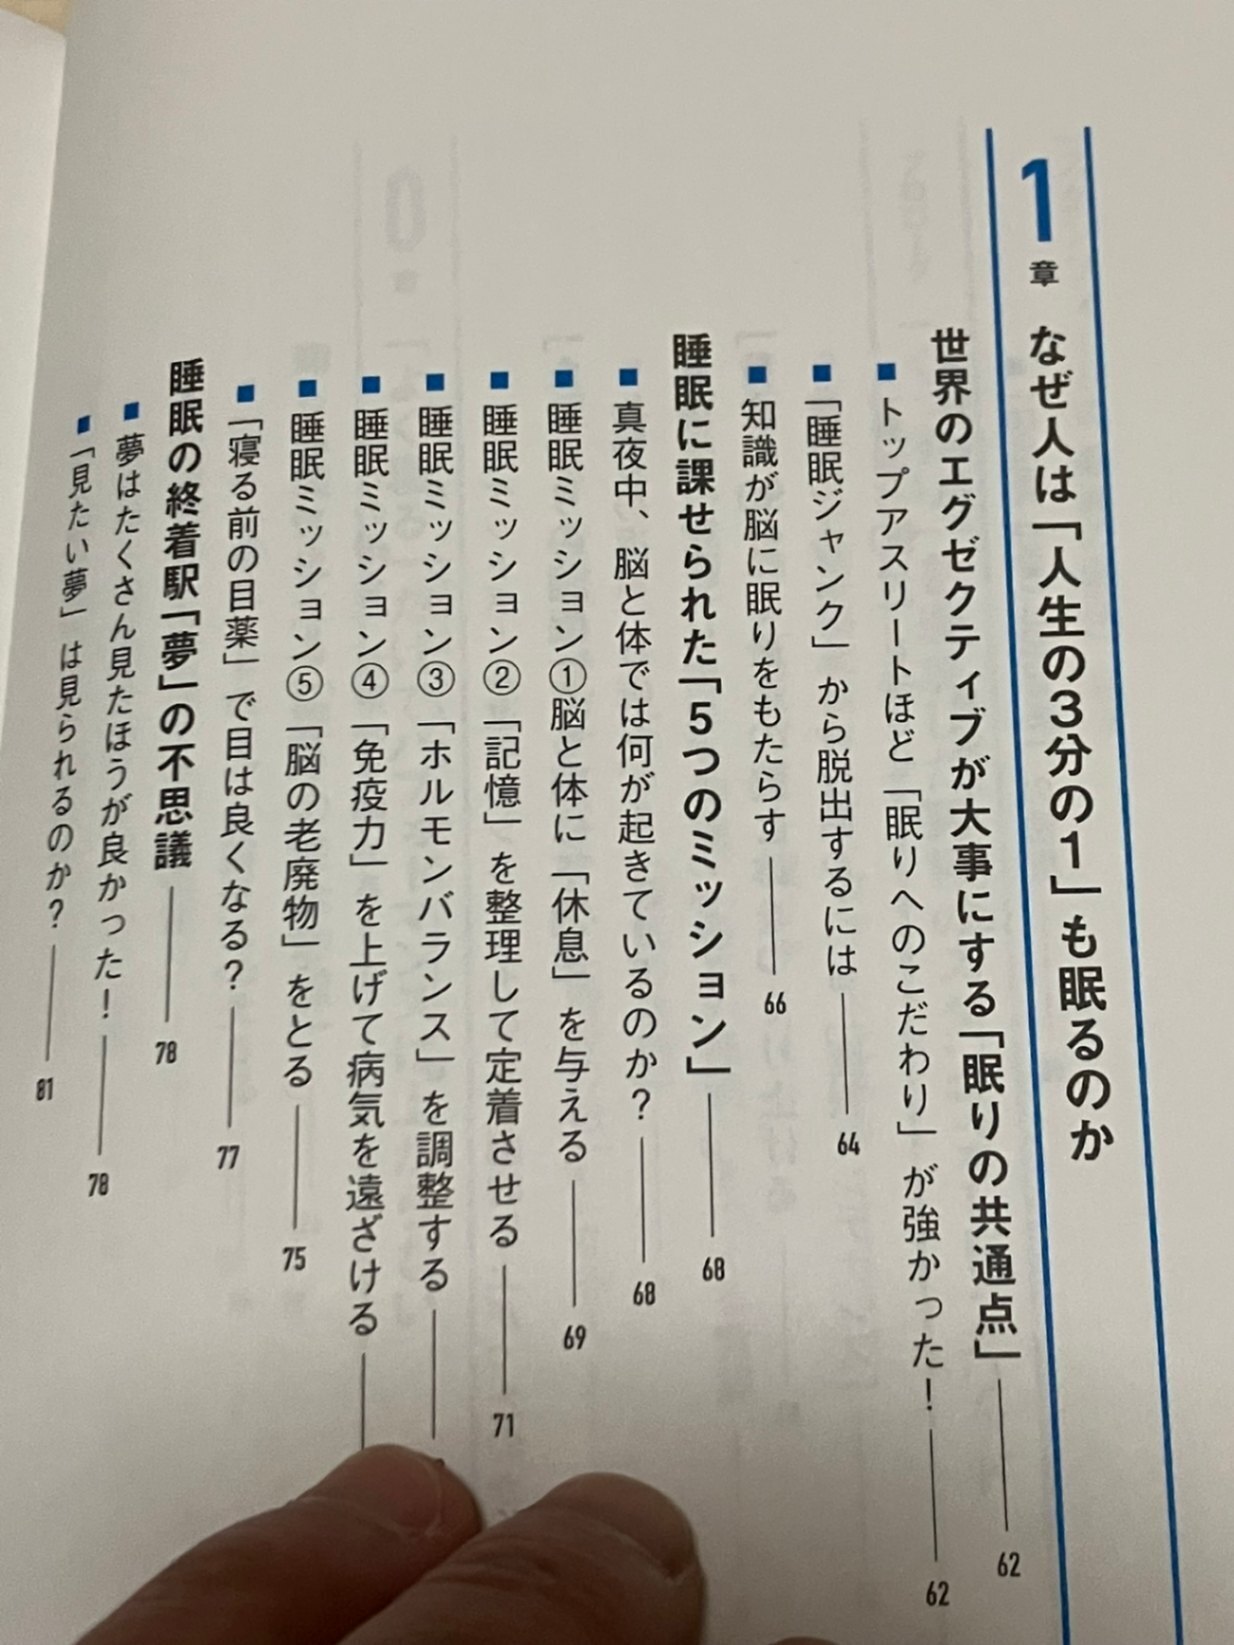 1章 なぜ人は「人生の3分の1」も眠るのか
世界のエグゼクティブが大事にする「眠りの共通点」 62
■ トップアスリートほど「眠りへのこだわり」が強かった! 62
■ 「睡眠ジャンク」から脱出するには 64
■ 知識が脳に眠りをもたらす 66
睡眠に課せられた「5つのミッション」 68
■ 真夜中、脳と体では何が起きているのか? 68
■ 睡眠ミッション①脳と体に「休息」を与える 69
■ 睡眠ミッション②「記憶」を整理して定着させる 71
■ 睡眠ミッション③「ホルモンバランス」を調整する
■ 睡眠ミッション④「免疫力」を上げて病気を遠ざける
■ 睡眠ミッション⑤「脳の老廃物」をとる 75
■ 「寝る前の目薬」で目は良くなる? 77
睡眠の終着駅「夢」の不思議 78
■ 夢はたくさん見たほうが良かった! 78
■ 「見たい夢」は見られるのか? 81